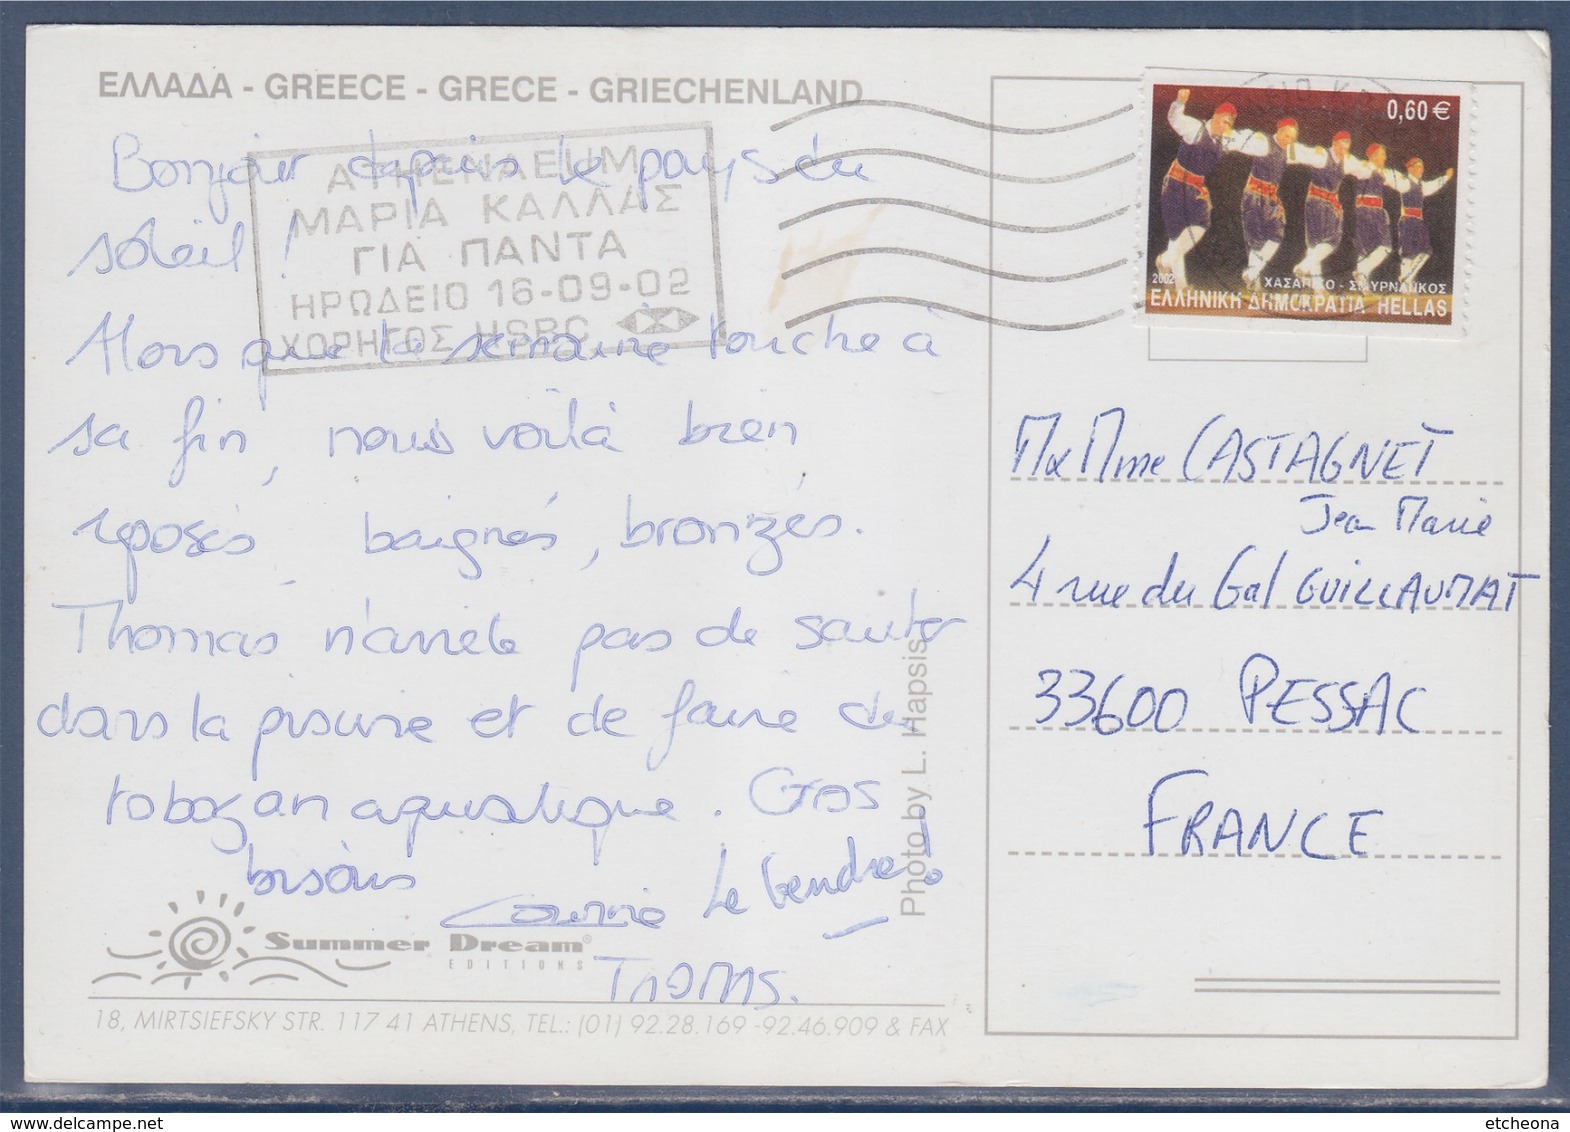 ΕΛΛΑΔΑ - GREECE - GRECE - GRIECHENLAND
ATHENAEUM
ΜΑΡΙΑ ΚΑΛΛΑΣ
ΓΙΑ ΠΑΝΤΑ
ΗΡΩΔΕΙΟ 16-09-02
ΧΟΡΗΓΟΣ HSBC
0,60 €
2002
ΧΑΣΑΠΙΚΟ - ΣΜΥΡΝΑΙΙΚΟΣ
ΕΛΛΗΝΙΚΗ ΔΗΜΟΚΡΑΤΙΑ HELLAS
Bonjour depuis le pays du
soleil !
Alors que la semaine touche à
sa fin, nous voilà bien
reposés, baignés, bronzés.
Thomas n'arrête pas de sauter
dans la piscine et de faire du
tobogan aquatique. Gros
bisous
Le Gendre!
THOMAS.
M x Mme CASTAGNET
Jean Marie
4 rue du Gal GUILLAUMAT
33600 PESSAC
FRANCE
Photo by L. Hapsis
Summer Dream®
EDITIONS
18, MIRTSIEFSKY STR. 117 41 ATHENS, TEL.: (01) 92.28.169 -92.46.909 & FAX
etcheona